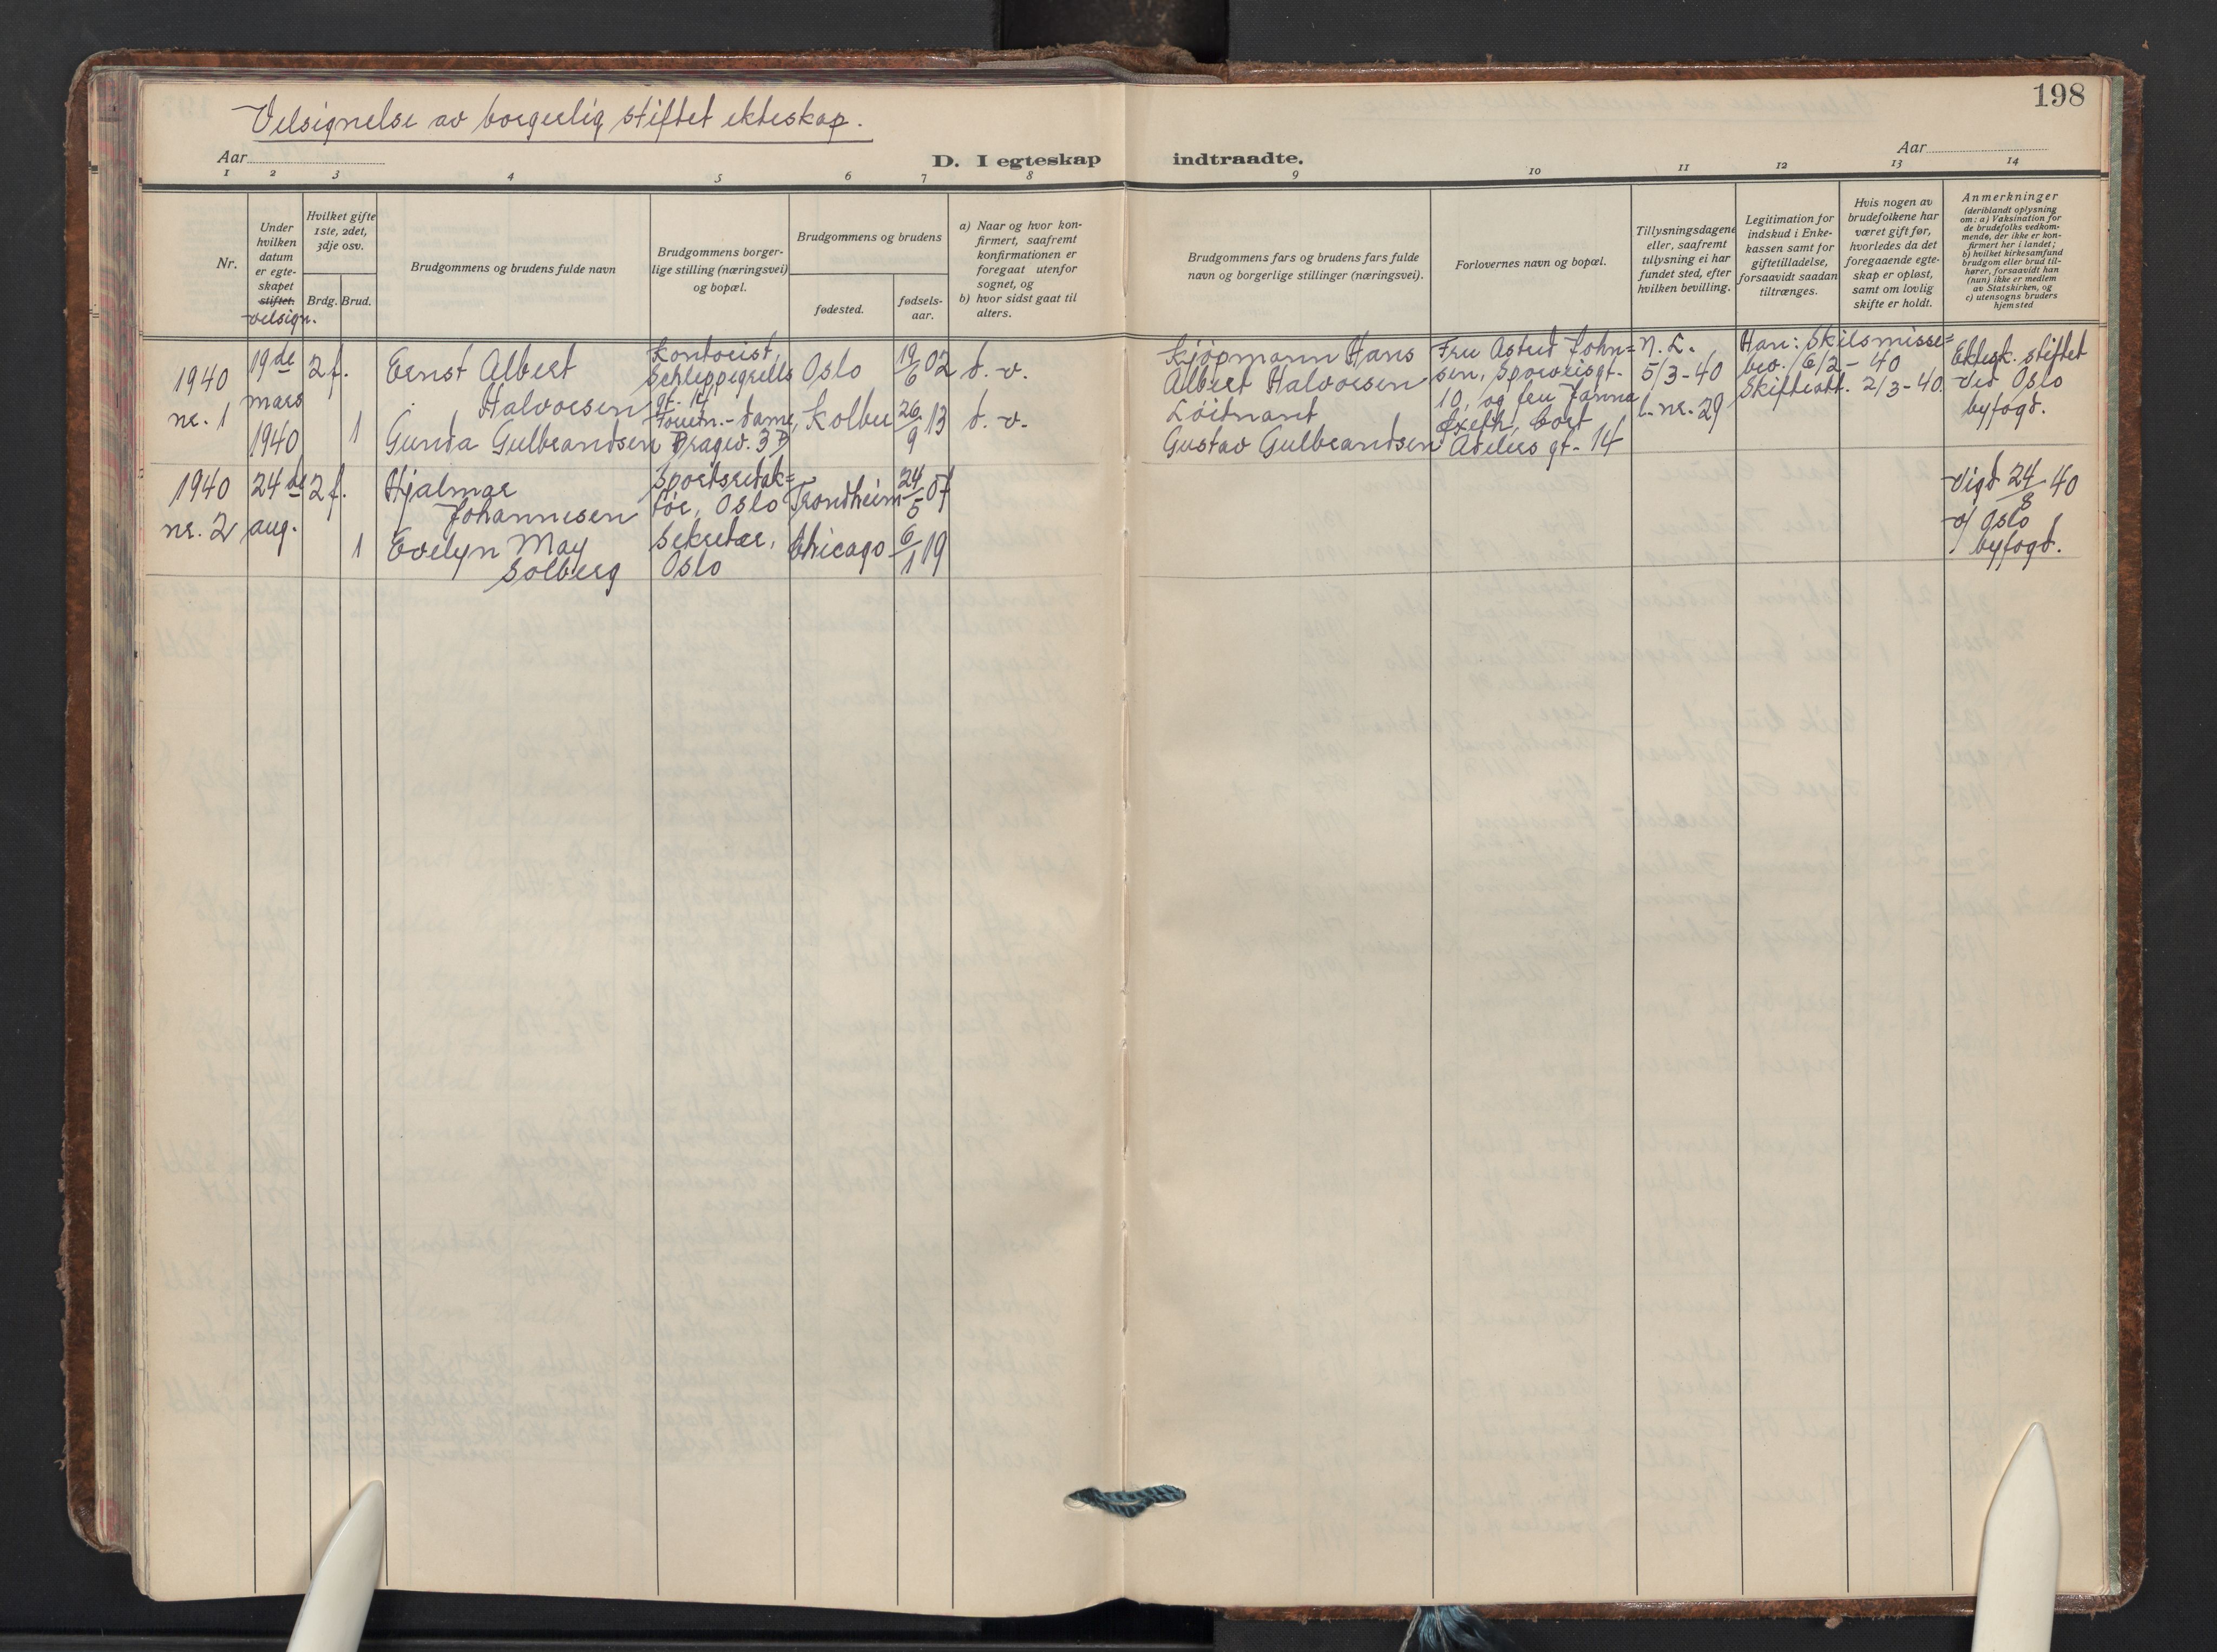 198
Velsignelse av borgerlig stiftet ekteskap.
Aar
D. I egteskap indtraadte.
Aar
1 2 3 4 5 6 7 8 9 10 11 12 13 14
Nr.
Under
hvilken
datum
er egte-
skapet
stiftet.
velsign.
Hvilket gifte
1ste, 2det,
3dje osv.
Brdg. Brud.
Brudgommens og brudens fulde navn
Brudgommens borger-
lige stilling (næringsvei)
og bopæl.
Brudgommens og brudens
fødested.
fødsels-
aar.
a) Naar og hvor kon-
firmert, saafremt
konfirmationen er
foregaat utenfor
sognet, og
b) hvor sidst gaat til
alters.
Brudgommens fars og brudens fars fulde
navn og borgerlige stillinger (næringsvei).
Forlovernes navn og bopæl.
Tillysningsdagene
eller, saafremt
tillysning ei har
fundet sted, efter
hvilken bevilling.
Legitimation for
indskud i Enke-
kassen samt for
giftetilladelse,
forsaavidt saadan
tiltrænges.
Hvis nogen av
brudefolkene har
været gift før,
hvorledes da det
foregaaende egte-
skap er opløst,
samt om lovlig
skifte er holdt.
Anmerkninger
(deriblandt oplysning
om: a) Vaksination for
de brudefolks vedkom-
mende, der ikke er kon-
firmert her i landet;
b) hvilket kirkesamfund
brudgom eller brud til-
hører, forsaavidt han
(hun) ikke er medlem
av Statskirken, og
c) utensogns bruders
hjemsted
1940
nr. 1
19de
mars
1940
2 f.
1
Ernst Albert
Halvorsen
Gunda Gulbrandsen
Kontorist,
Schleppegrells
gt.
dame,
Oslo
Kolbu
19/6 02
26/9 13
d. v.
d. v.
Kjøpmann Hans
Albert Halvorsen
Løitnant
Gustav Gulbrandsen
Fru Astrid John=
sen, gt.
10, og fru Janna
Cort
Adelers gt. 14
N. L.
5/3-40
l. nr. 29
Han: Skilsmisse=
bev. 6/2 - 40
Skifteatt. 2/3-40.
Ektesk. stiftet
ved Oslo
byfogd.
1940
nr. 2
24de
aug.
2 f.
1
Hjalmar
Johannesen
Evelyn May
Solberg
Sportsredak=
tør, Oslo
Sekretær,
Oslo
Trondheim
Chicago
24/5 07
6/1 19
Vigd 24/8 40
v/ Oslo
byfogd.